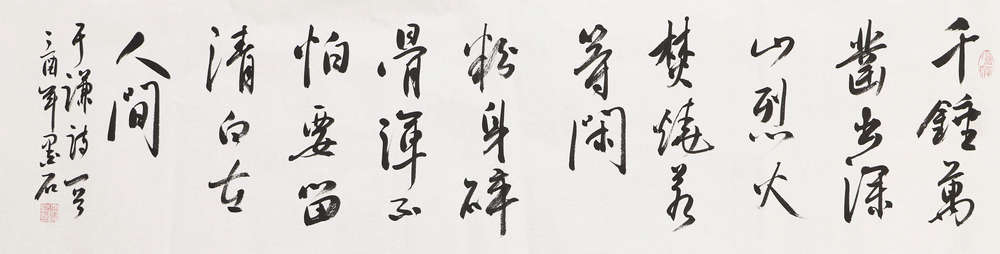 千錘萬
凿出深
山烈火
焚燒若
等閑
粉身碎
骨渾不
怕要留
清白在
人間
于謙詩一首
酉年墨石